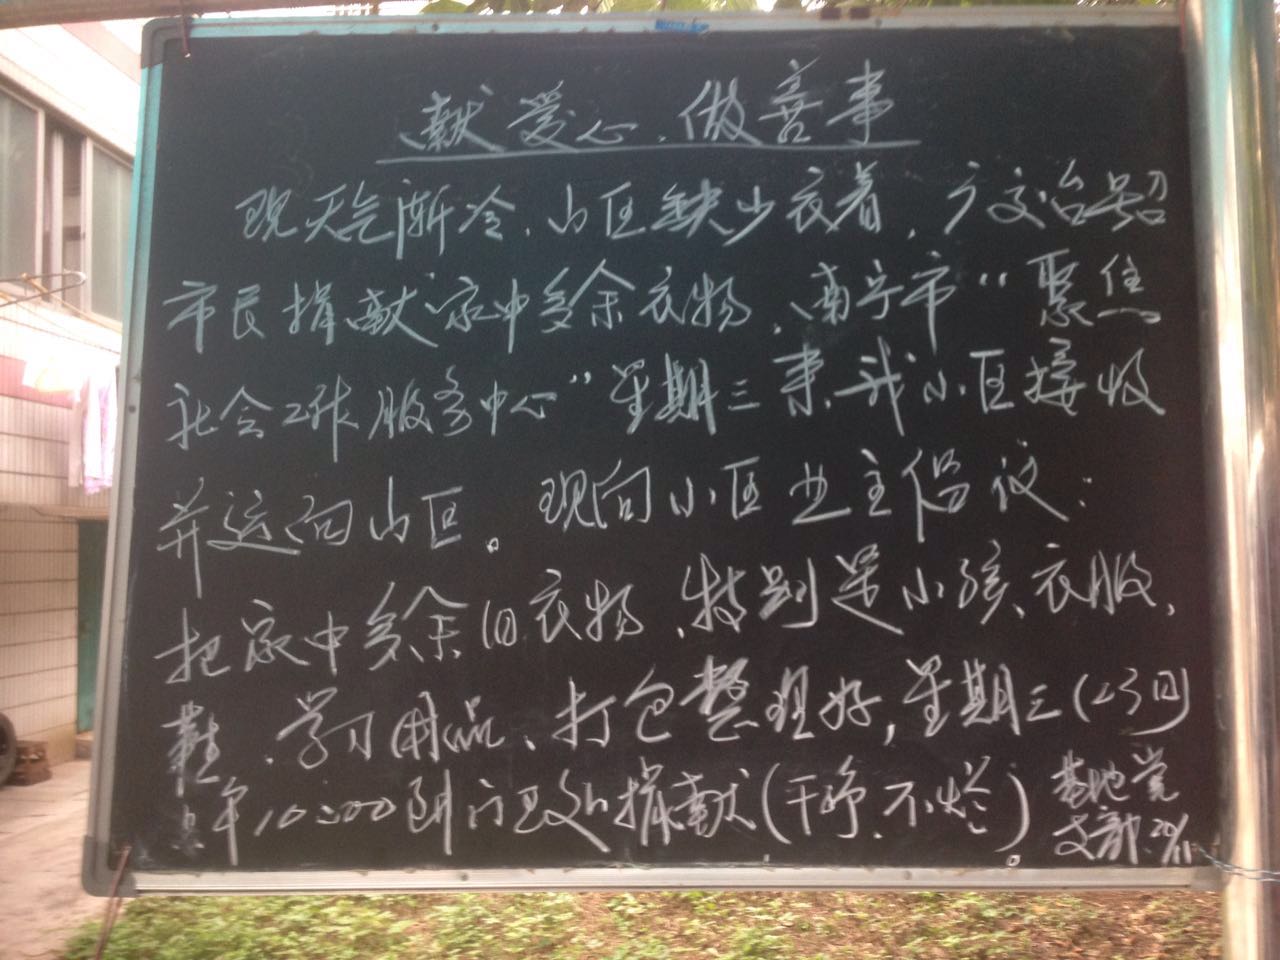 献爱心、做善事
现天气渐冷、山区缺少衣着,广文治号召
市民捐献家中多余衣物,南宁市“聚焦
社会工作服务中心”星期三来我小区接收
并运向山区。现向小区业主倡议:
把家中多余旧衣物、特别是小孩衣服、
鞋、学习用品、打包整理好,星期三(23日)
上午10:00到门卫处捐献(干净、不烂)。
基地党
支部 20/11